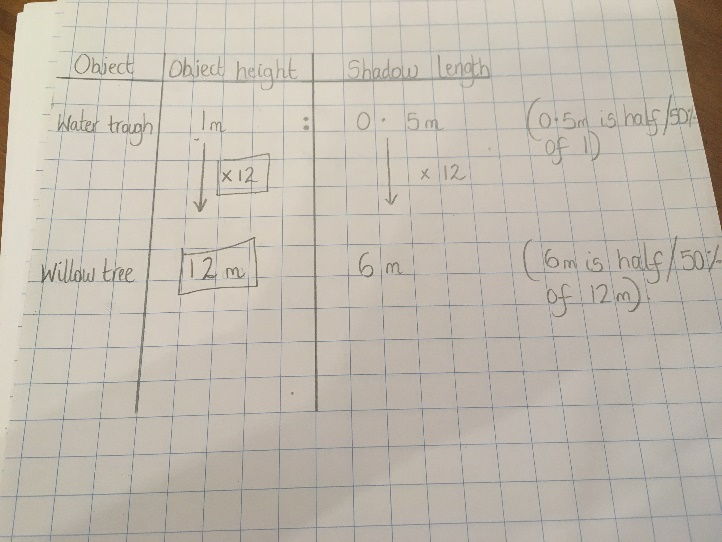 Object Object height Shadow length
Water trough 1m : 0.5m (0.5m is half/50%
of 1)
×12 × 12
Willow tree 12 m 6 m (6m is half/50%
of 12m).